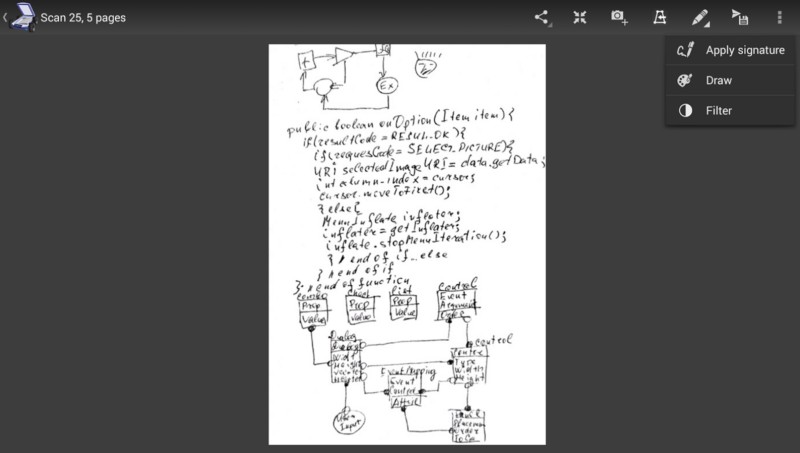 Scan 25, 5 pages
Apply signature
Draw
Filter
+
Ex
public boolean onOption(Item item){
if(resultCode = RESUL_OK){
if(requesCode = SELECT_PICTURE){
URi selectedImage URi = data.getData;
int column-index = cursor;
cursor.moveToFirst();
} else{
MenuInflate inflater;
inflater = getInflater;
inflate.stopMenuIteration();
} // end of if...else
} // end of if
}; // end of function
Combo
Prop
Value
Check
Prop
Value
List
Prop
Value
Control
Event
Argument
Dialog
Width
Height
Control
Type
Width
Height
Event Mapping
Event
Control
User
Input